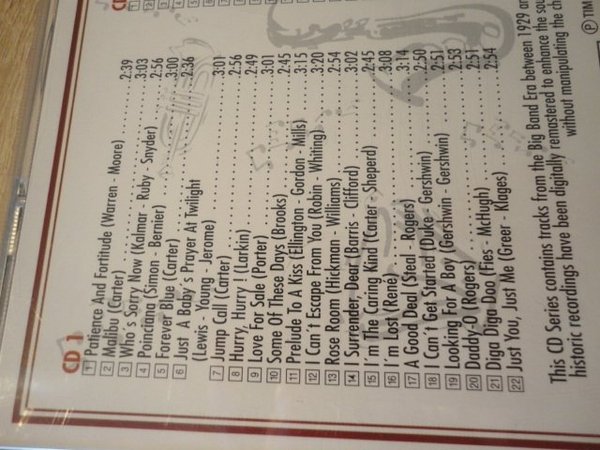 CD 1
1 Patience And Fortitude (Warren - Moore) 2:39
2 Malibu (Carter) 3:03
3 Who's Sorry Now (Kalmar - Ruby - Snyder) 2:56
4 Poinciana (Simon - Bernier) 3:00
5 Forever Blue (Carter) 2:36
6 Just A Baby's Prayer At Twilight
(Lewis - Young - Jerome) 3:01
7 Jump Call (Carter) 2:56
8 Hurry, Hurry! (Larkin) 2:49
9 Love For Sale (Porter) 3:01
10 Some Of These Days (Brooks) 2:45
11 Prelude To A Kiss (Ellington - Gordon - Mills) 3:15
12 I Can't Escape From You (Robin - Whiting) 3:20
13 Rose Room (Hickman - Williams) 2:54
14 I Surrender, Dear (Barris - Clifford) 3:02
15 I'm The Caring Kind (Carter - Sheperd) 2:45
16 I'm Lost (René) 3:08
17 A Good Deal (Steal - Rogers) 3:14
18 I Can't Get Started (Duke - Gershwin) 2:50
19 Looking For A Boy (Gershwin - Gershwin) 2:51
20 Daddy-O (Rogers) 2:53
21 Diga Diga Doo (Fies - McHugh) 2:51
22 Just You, Just Me (Greer - Klages) 2:54
This CD Series contains tracks from the Big Band Era between 1929 an
historic recordings have been digitally remastered to enhance the sou
without manipulating the ch
℗ TIM
CD